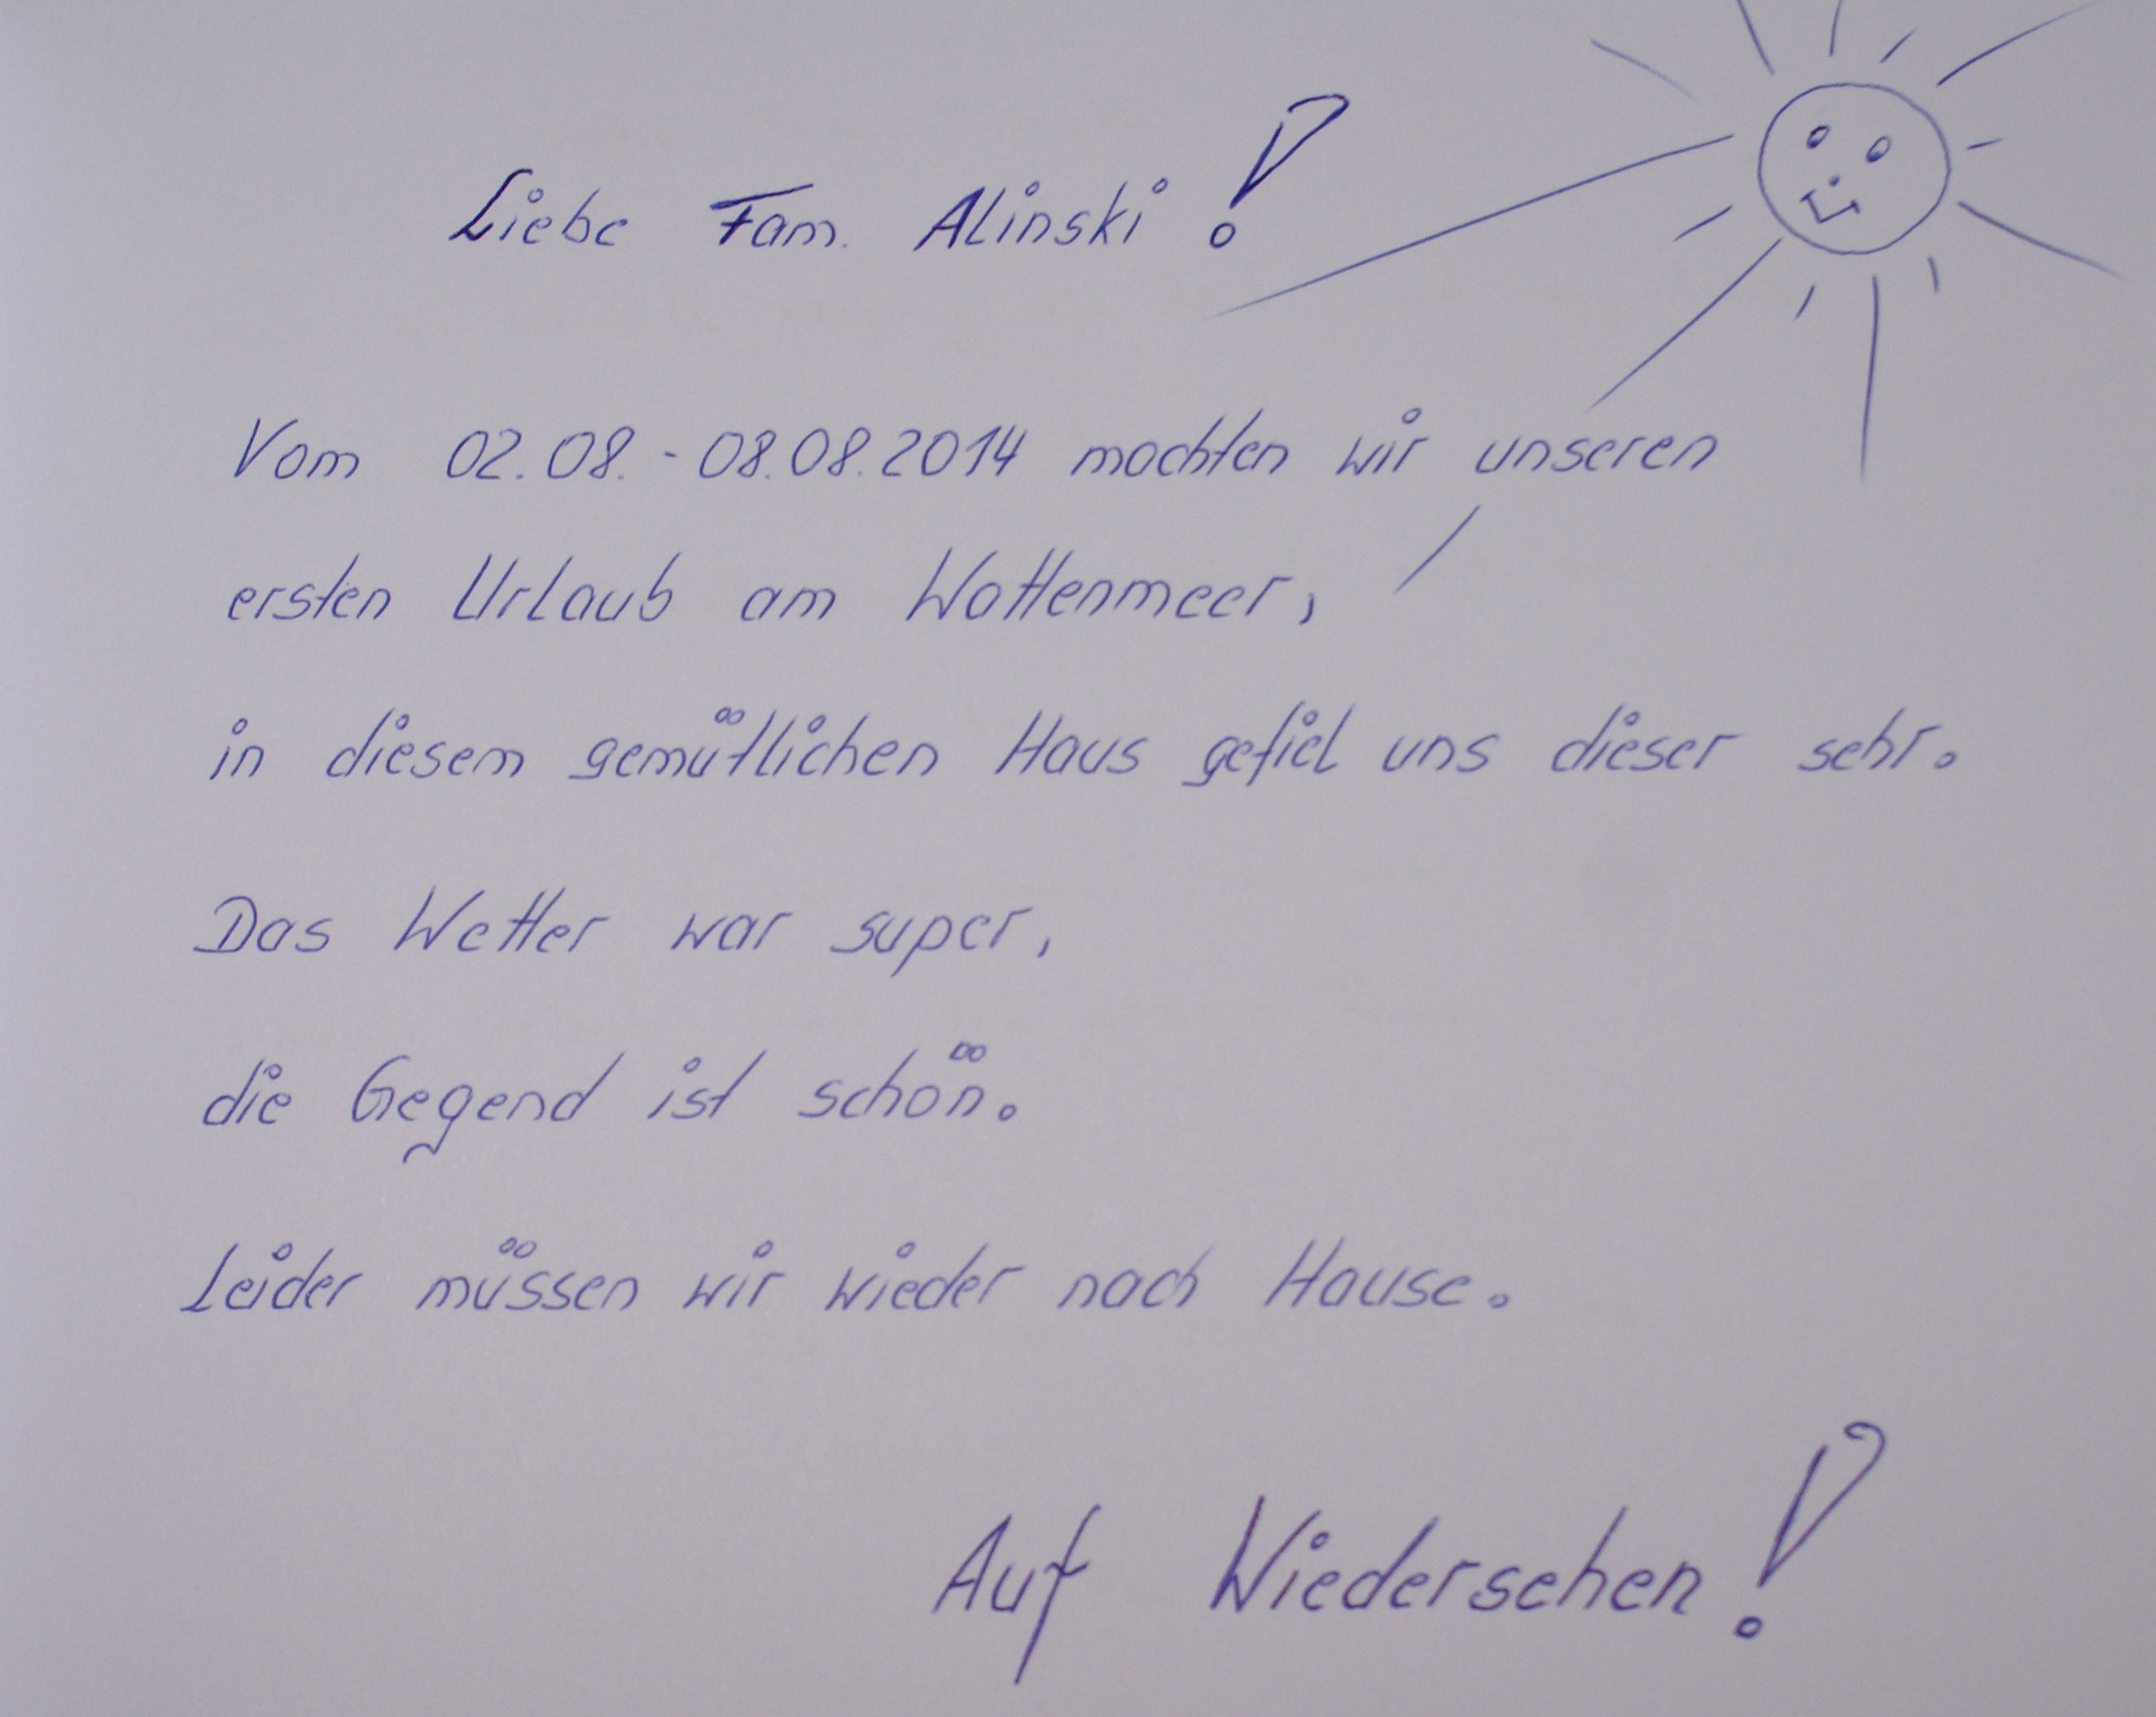 Liebe Fam. Alinski!
Vom 02.08.-08.08.2014 machten wir unseren
ersten Urlaub am Wattenmeer,
in diesem gemütlichen Haus gefiel uns dieser sehr.
Das Wetter war super,
die Gegend ist schön.
Leider müssen wir wieder nach Hause.
Auf Wiedersehen!